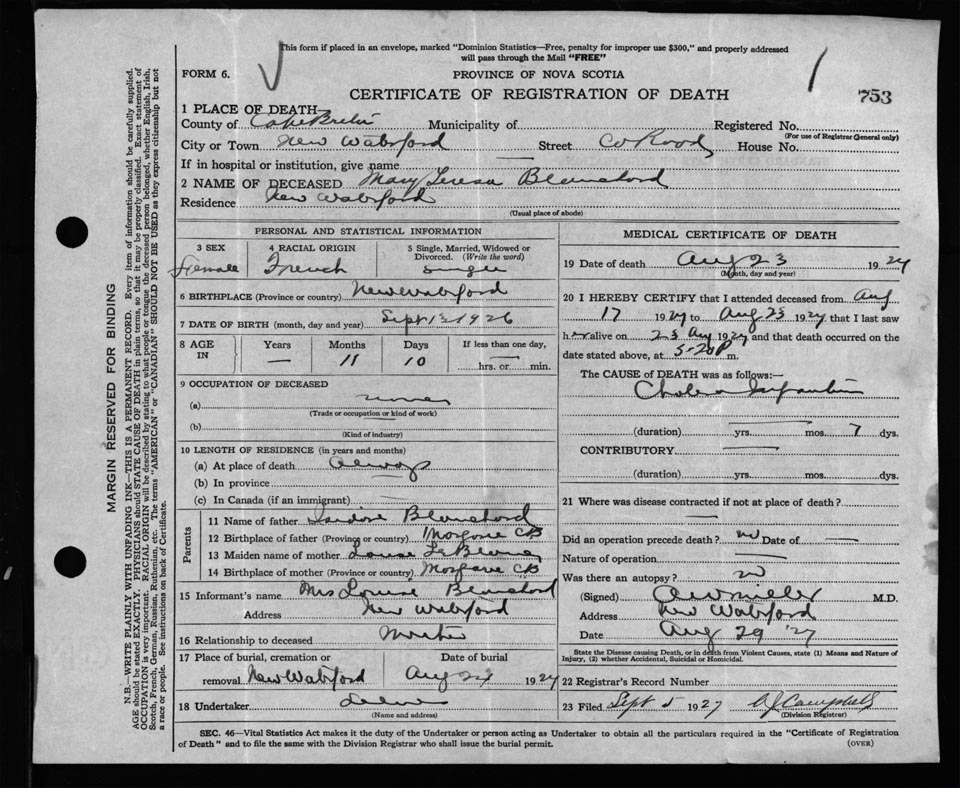 This form if placed in an envelope, marked "Dominion Statistics—Free, penalty for improper use $300," and properly addressed
will pass through the Mail "FREE"
FORM 6.
PROVINCE OF NOVA SCOTIA
CERTIFICATE OF REGISTRATION OF DEATH
753
1 PLACE OF DEATH—
County of Cape Breton Municipality of Registered No.
(For use of Registrar General only)
City or Town New Waterford Street House No.
If in hospital or institution, give name —
2 NAME OF DECEASED Mary Teresa Blanchard
Residence New Waterford
(Usual place of abode)
PERSONAL AND STATISTICAL INFORMATION
3 SEX 4 RACIAL ORIGIN 5 Single, Married, Widowed or Divorced. (Write the word)
Female French single
6 BIRTHPLACE (Province or country) New Waterford
7 DATE OF BIRTH (month, day and year) Sept 13 1926
8 AGE IN Years Months Days If less than one day,
— 11 10 hrs. or min.
9 OCCUPATION OF DECEASED
(a) none
(Trade or occupation or kind of work)
(b)
(Kind of industry)
10 LENGTH OF RESIDENCE (in years and months)
(a) At place of death always
(b) In province —
(c) In Canada (if an immigrant) —
Parents
11 Name of father Isidore Blanchard
12 Birthplace of father (Province or country) CB
13 Maiden name of mother Louise LeBlanc
14 Birthplace of mother (Province or country) CB
15 Informant's name Mrs Louise Blanchard
Address New Waterford
16 Relationship to deceased Mother
17 Place of burial, cremation or removal New Waterford Date of burial Aug 24 1927
18 Undertaker
(Name and address)
MEDICAL CERTIFICATE OF DEATH
19 Date of death Aug 23 1927
(Month, day and year)
20 I HEREBY CERTIFY that I attended deceased from Aug
17 1927 to Aug 23 1927 that I last saw
her alive on 23 Aug 1927 and that death occurred on the
date stated above, at 5-20 P m.
The CAUSE of DEATH was as follows:—
Cholera Infantum
(duration) yrs. — mos. 7 dys.
CONTRIBUTORY —
(duration) yrs. — mos. dys.
21 Where was disease contracted if not at place of death?
—
Did an operation precede death? no Date of —
Nature of operation —
Was there an autopsy? no
(Signed) M.D.
Address New Waterford
Date Aug 29 '27
State the Disease causing Death, or in death from Violent Causes, state (1) Means and Nature of
Injury, (2) whether Accidental, Suicidal or Homicidal.
22 Registrar's Record Number
23 Filed Sept 5 1927 Campbell
(Division Registrar)
SEC. 46—Vital Statistics Act makes it the duty of the Undertaker or person acting as Undertaker to obtain all the particulars required in the "Certificate of Registration
of Death" and to file the same with the Division Registrar who shall issue the burial permit.
(OVER)
MARGIN RESERVED FOR BINDING
N.B.—WRITE PLAINLY WITH UNFADING INK—THIS IS A PERMANENT RECORD. Every item of information should be carefully supplied.
AGE should be stated EXACTLY. PHYSICIANS should STATE CAUSE OF DEATH in plain terms, so that it may be properly classified. Exact statement of
OCCUPATION is very important. RACIAL ORIGIN will be described by stating to what people or tongue the deceased person belonged, whether English, Irish,
Scotch, French, German, Russian, Ruthenian, etc. The terms "AMERICAN" or "CANADIAN" SHOULD NOT BE USED as they express citizenship but not
a race or people. See instructions on back of Certificate.